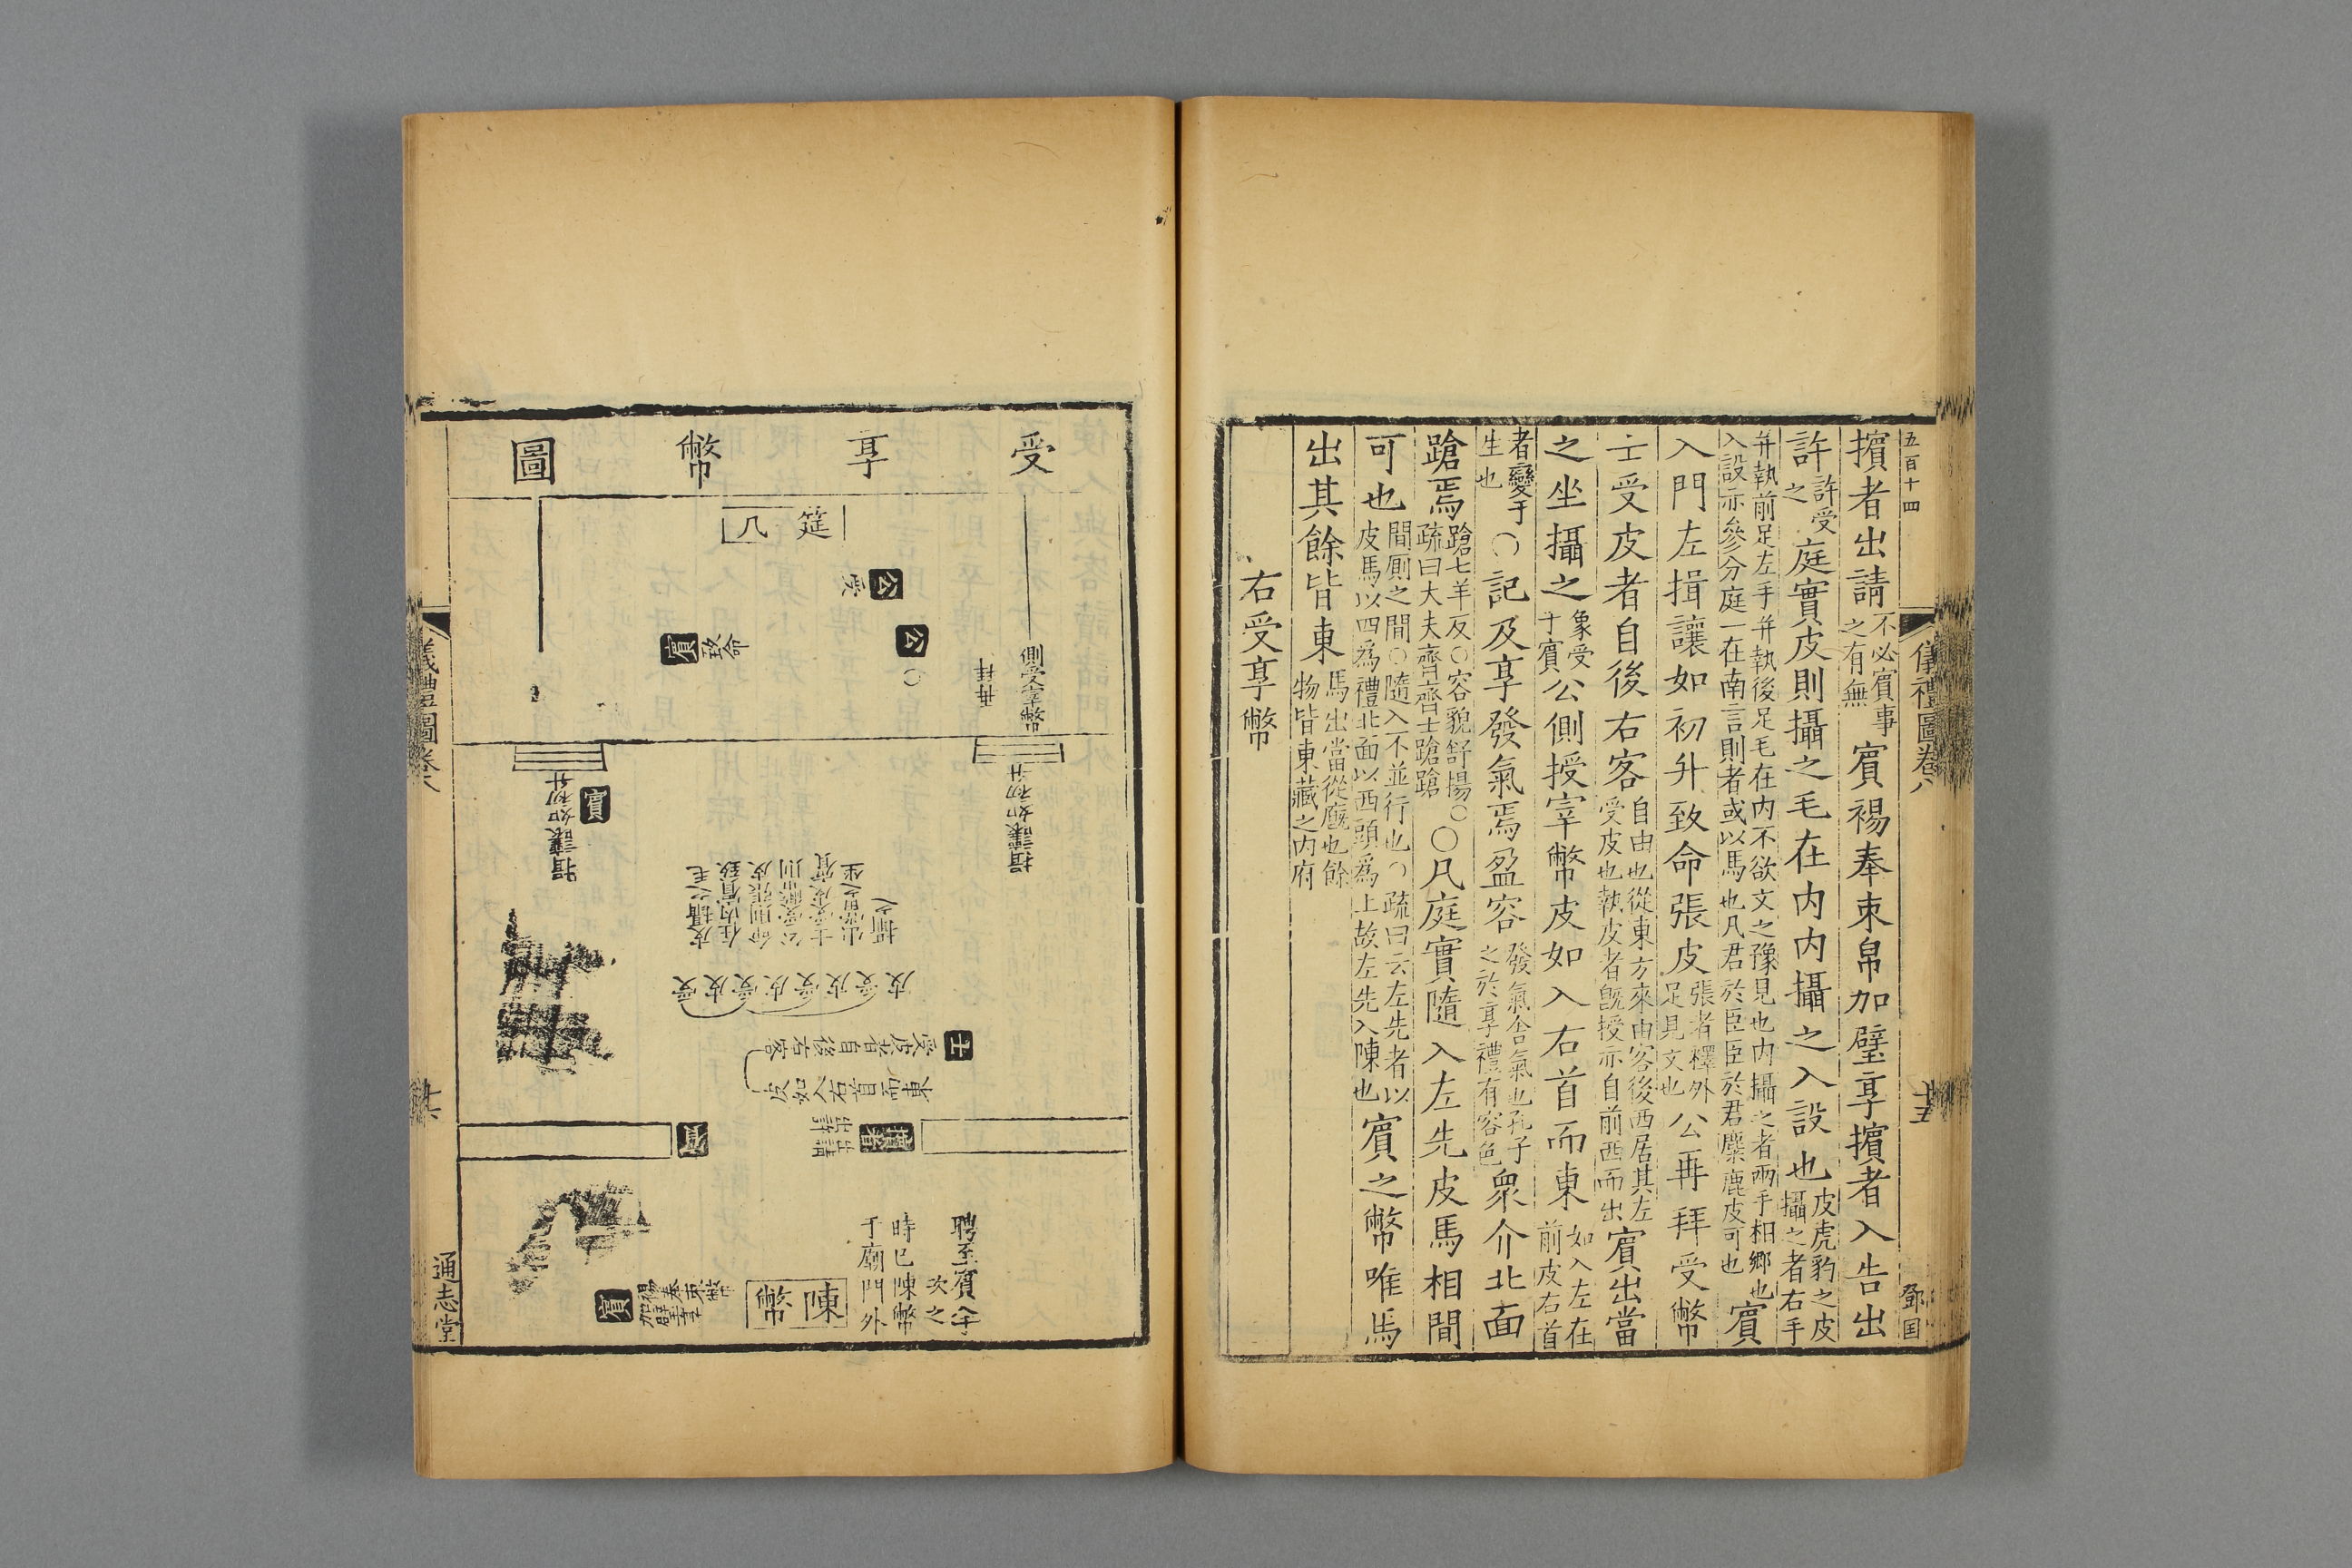 五百十四
儀禮圖卷八
十五
鄧国
擯者出請不必賓事之有無賓裼奉束帛加璧享擯者入告出
許許受之庭實皮則攝之毛在內內攝之入設也皮虎豹之皮攝之者右手
并執前足左手并執後足毛在內不欲文之豫見也內攝之者兩手相鄉也入設亦參分庭一在南言則者或以馬也凡君於臣臣於君麋鹿皮可也賓
入門左揖讓如初升致命張皮張者釋外足見文也公再拜受幣
士受皮者自後右客自由也從東方來由客後西居其左受皮也執皮者既授亦自前西而出賓出當
之坐攝之象受于賓公側授宰幣皮如入右首而東如入左在前皮右首
者變于生也○記及享發氣焉盈容發氣舍氣也孔子之於享禮有容色衆介北面
蹌焉蹌七羊反○容貌舒揚○疏曰大夫齊齊士蹌蹌○凡庭實隨入左先皮馬相間
可也間厠之間○隨入不並行也○疏曰云左先者以皮馬以四為禮北面以西頭為上故左先入陳也賓之幣唯馬
出其餘皆東馬出當從廐也餘物皆東藏之內府
右受享幣
受享幣圖
側受宰幣
再拜
筵
几
公
受
公
○
賓
致命
揖讓如初升
賓
揖讓如初升
皮攝之毛
在內賓致
命則張皮
公受幣則
士受皮賓
出當之坐
攝之
皮受皮受皮受皮受
士
受皮者自後右客
皮如入右首而東
擯者
出請
賓
聘至賓
次之
時已陳幣
于廟門外
陳幣
賓
儀禮圖卷八
通志堂